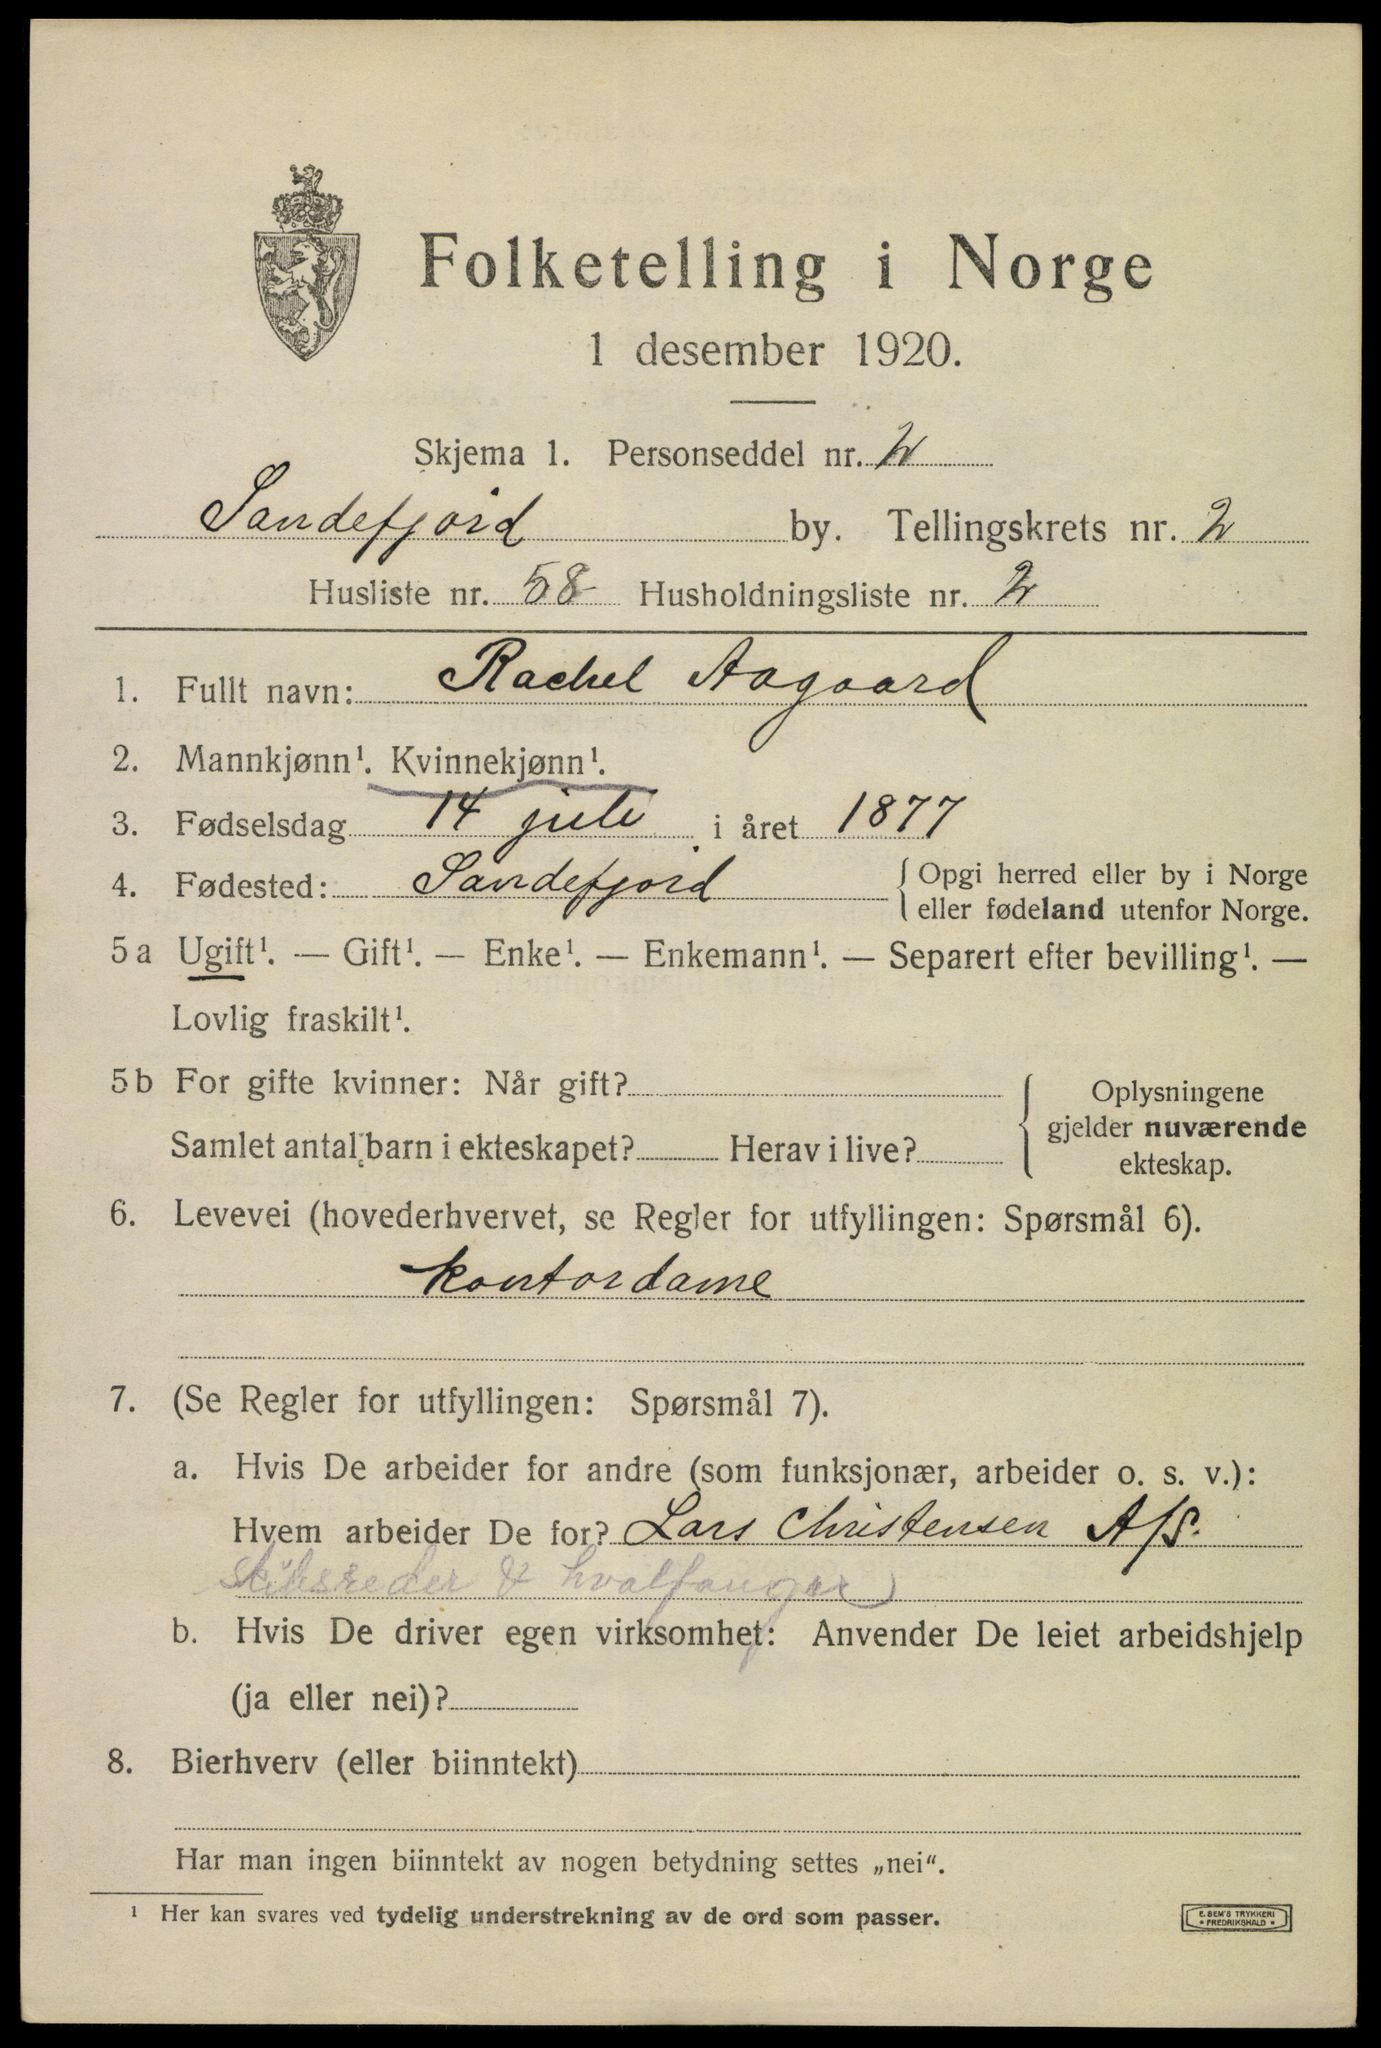 Folketelling i Norge
1 desember 1920.
Skjema 1. Personseddel nr. 2
Sandefjord by. Tellingskrets nr. 2
Husliste nr. 58 Husholdningsliste nr. 2
1. Fullt navn: Rachel Aagaard
2. Mannkjønn¹. Kvinnekjønn¹.
3. Fødselsdag 14 juli i året 1877
4. Fødested: Sandefjord { Opgi herred eller by i Norge
eller fødeland utenfor Norge.
5 a Ugift¹. — Gift¹. — Enke¹. — Enkemann¹. — Separert efter bevilling¹. —
Lovlig fraskilt¹.
5 b For gifte kvinner: Når gift? { Oplysningene
gjelder nuværende
Samlet antal barn i ekteskapet? Herav i live?
ekteskap.
6. Levevei (hovederhvervet, se Regler for utfyllingen: Spørsmål 6).
kontordame
7. (Se Regler for utfyllingen: Spørsmål 7).
a. Hvis De arbeider for andre (som funksjonær, arbeider o. s. v.):
Hvem arbeider De for? Lars Christensen A/S.
skibsreder & hvalfanger)
b. Hvis De driver egen virksomhet: Anvender De leiet arbeidshjelp
(ja eller nei)?
8. Bierhverv (eller biinntekt)
Har man ingen biinntekt av nogen betydning settes „nei“.
¹ Her kan svares ved tydelig understrekning av de ord som passer.
E. SEM'S TRYKKERI
* FREDRIKSHALD *